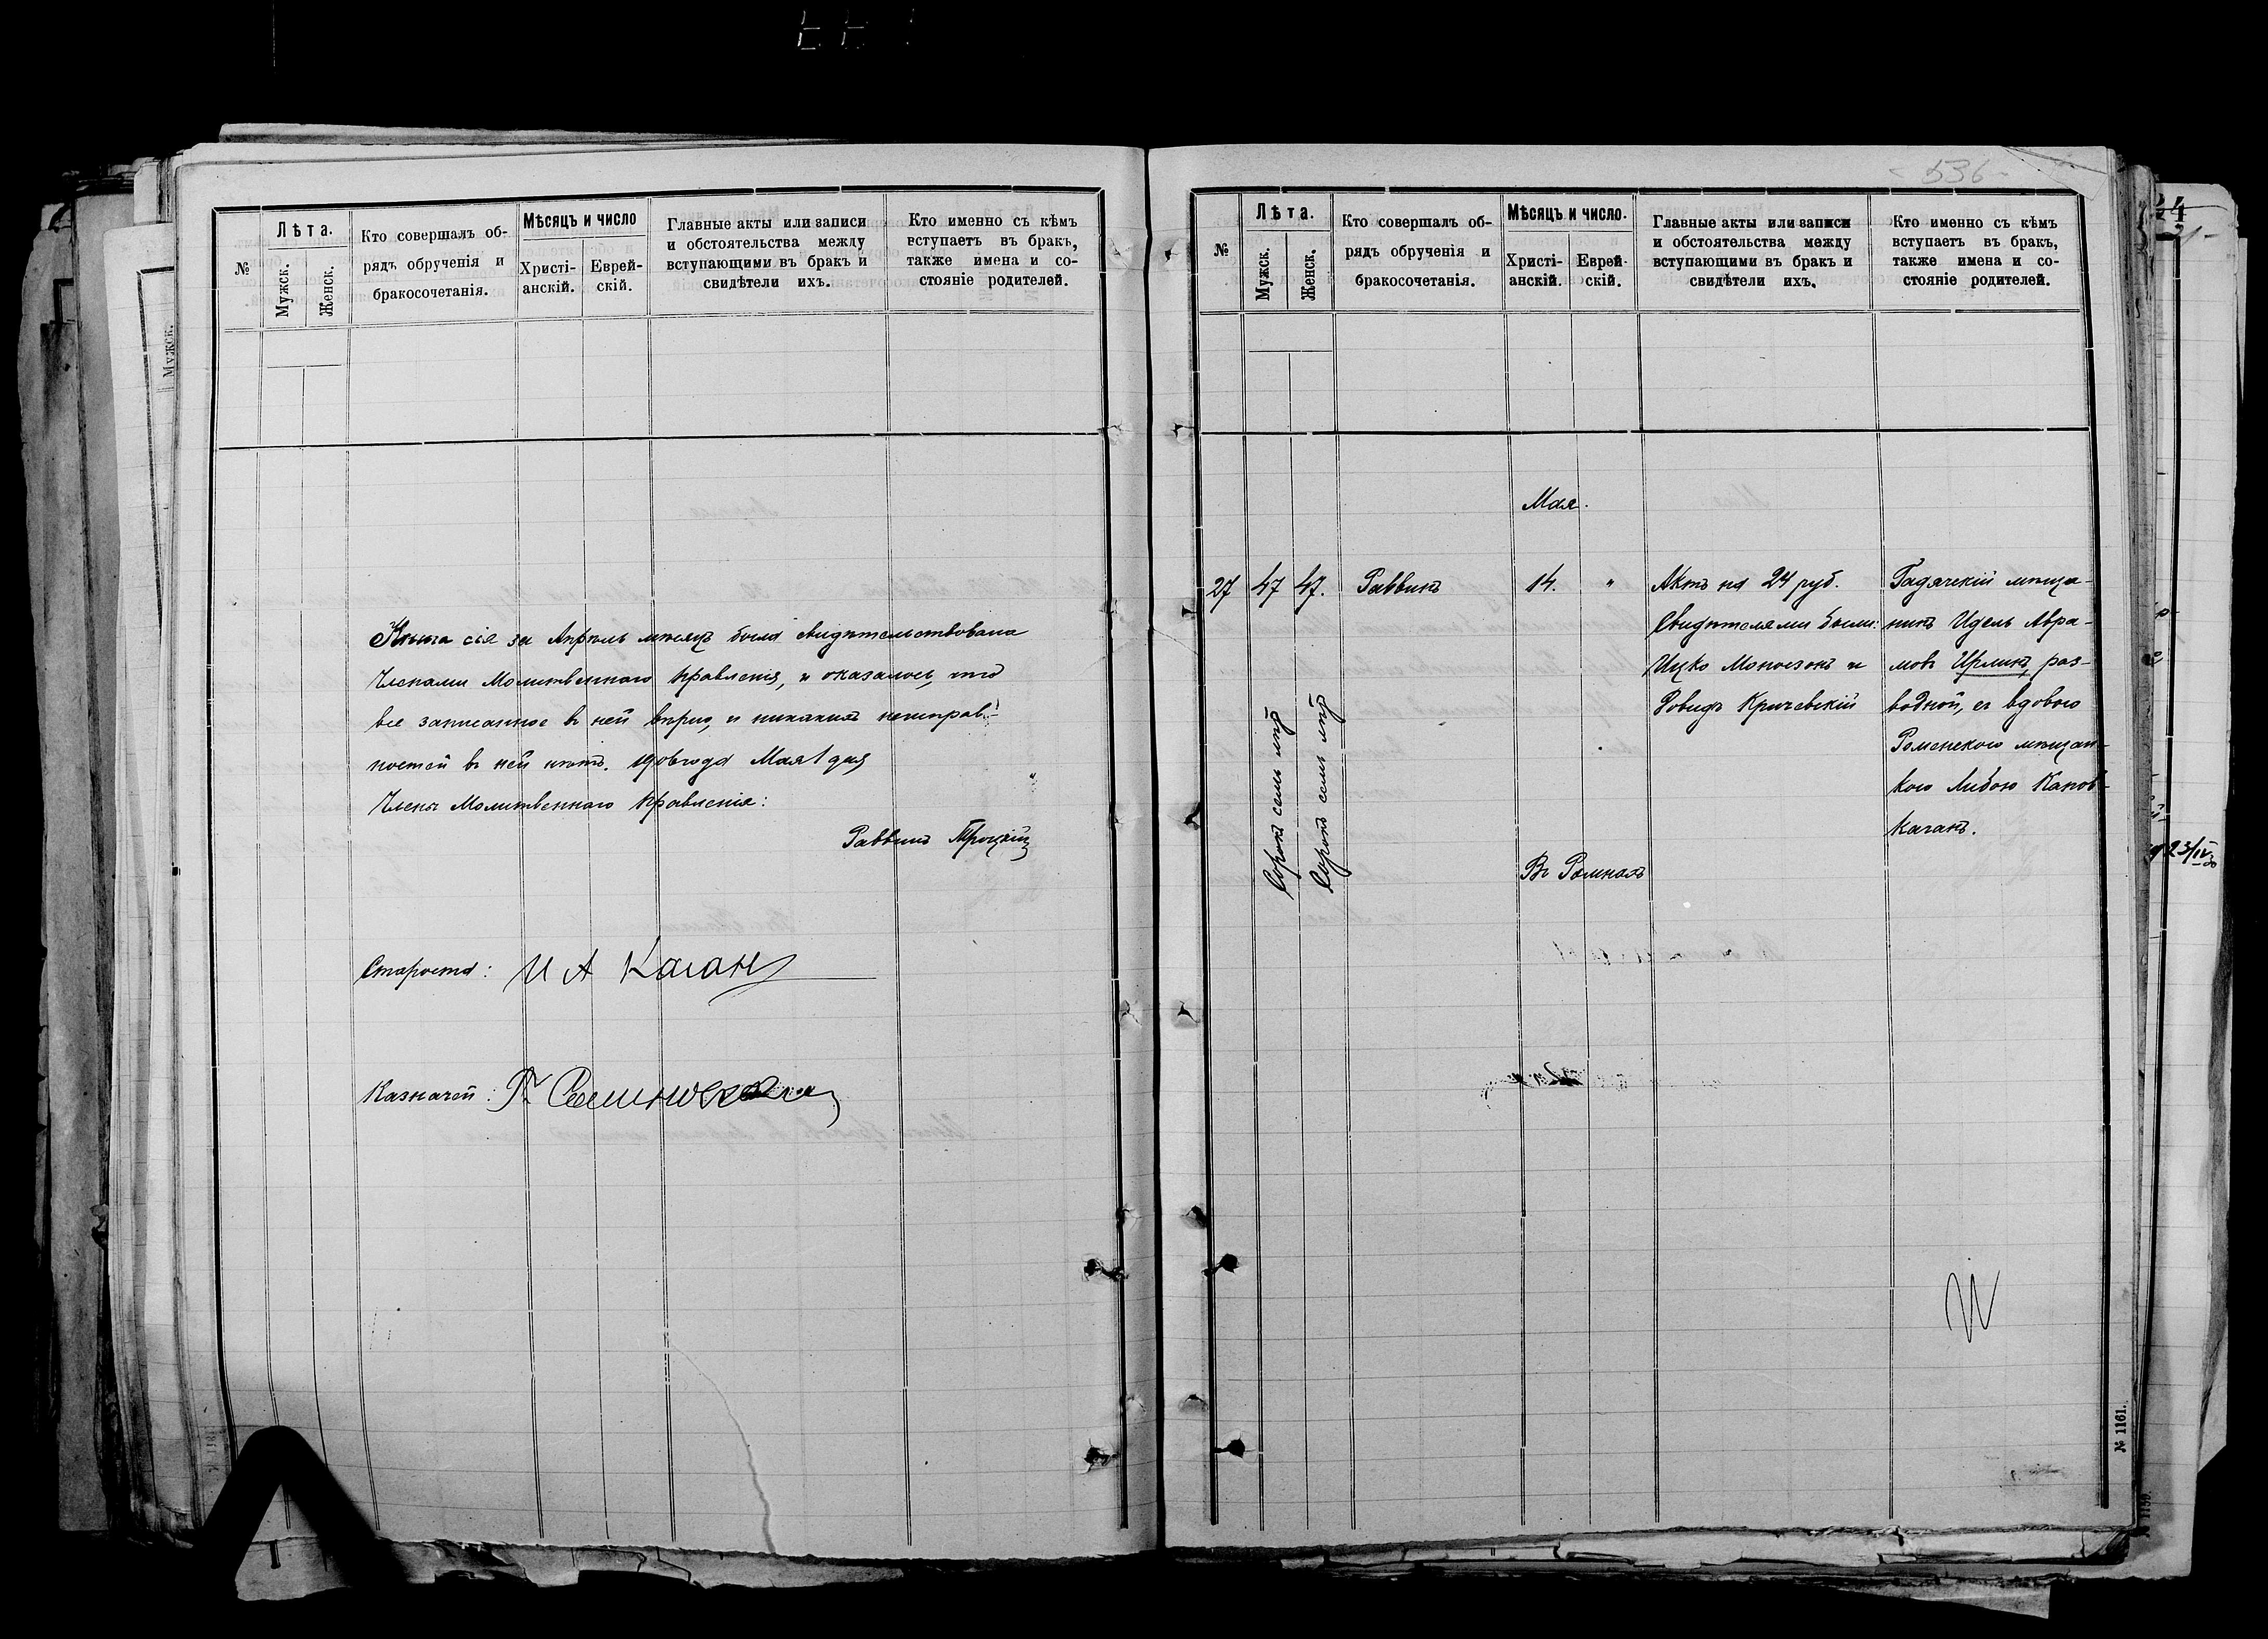 №
Лѣта.
Мужск.
Женск.
Кто совершалъ об-
рядъ обрученія и
бракосочетанія.
Мѣсяцъ и число
Христі-
анскій.
Еврей-
скій.
Главные акты или записи
и обстоятельства между
вступающими въ бракъ и
свидѣтели ихъ.
Кто именно съ кѣмъ
вступаетъ въ бракъ,
также имена и со-
стояніе родителей.
Книга сія за Апрѣль мѣсяцъ была свидѣтельствована
Членами Молитвеннаго Правленія, и оказалось, что
все записанное в ней вѣрно, и никакихъ неисправ-
ностей в ней нѣтъ. 1906 года Мая 1 дня
Члены Молитвеннаго Правленія:
Раввинъ Троцкій
Староста: И А Каганъ
Казначей:
536
№
Лѣта.
Мужск.
Женск.
Кто совершалъ об-
рядъ обрученія и
бракосочетанія.
Мѣсяцъ и число.
Христі-
анскій.
Еврей-
скій.
Главные акты или записи
и обстоятельства между
вступающими въ бракъ и
свидѣтели ихъ.
Кто именно съ кѣмъ
вступаетъ въ бракъ,
также имена и со-
стояніе родителей.
Мая.
27
47
47.
Сорокъ семь лѣтъ
Сорокъ семь лѣтъ
Раввинъ
14.
"
В Ромнахъ
Актъ на 24 руб.
Свидѣтелями были:
Ицко Моносзонъ и
Довидъ Кричевскій
Гадячскій мѣща-
нинъ Идель Авра-
мовъ Ирлинъ, раз-
водной, съ вдовою
Роменскою мѣщан-
кою Либою Канов-
Каганъ.
№ 1161.
Мужск.
23/IV